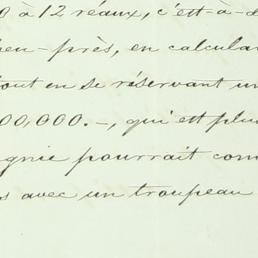 à 12 réaux, c'est-à-d
peu-près, en calcula
tout en se réservant un
00,000.-, qui est plu
gnie pourrait com
s avec un troupeau